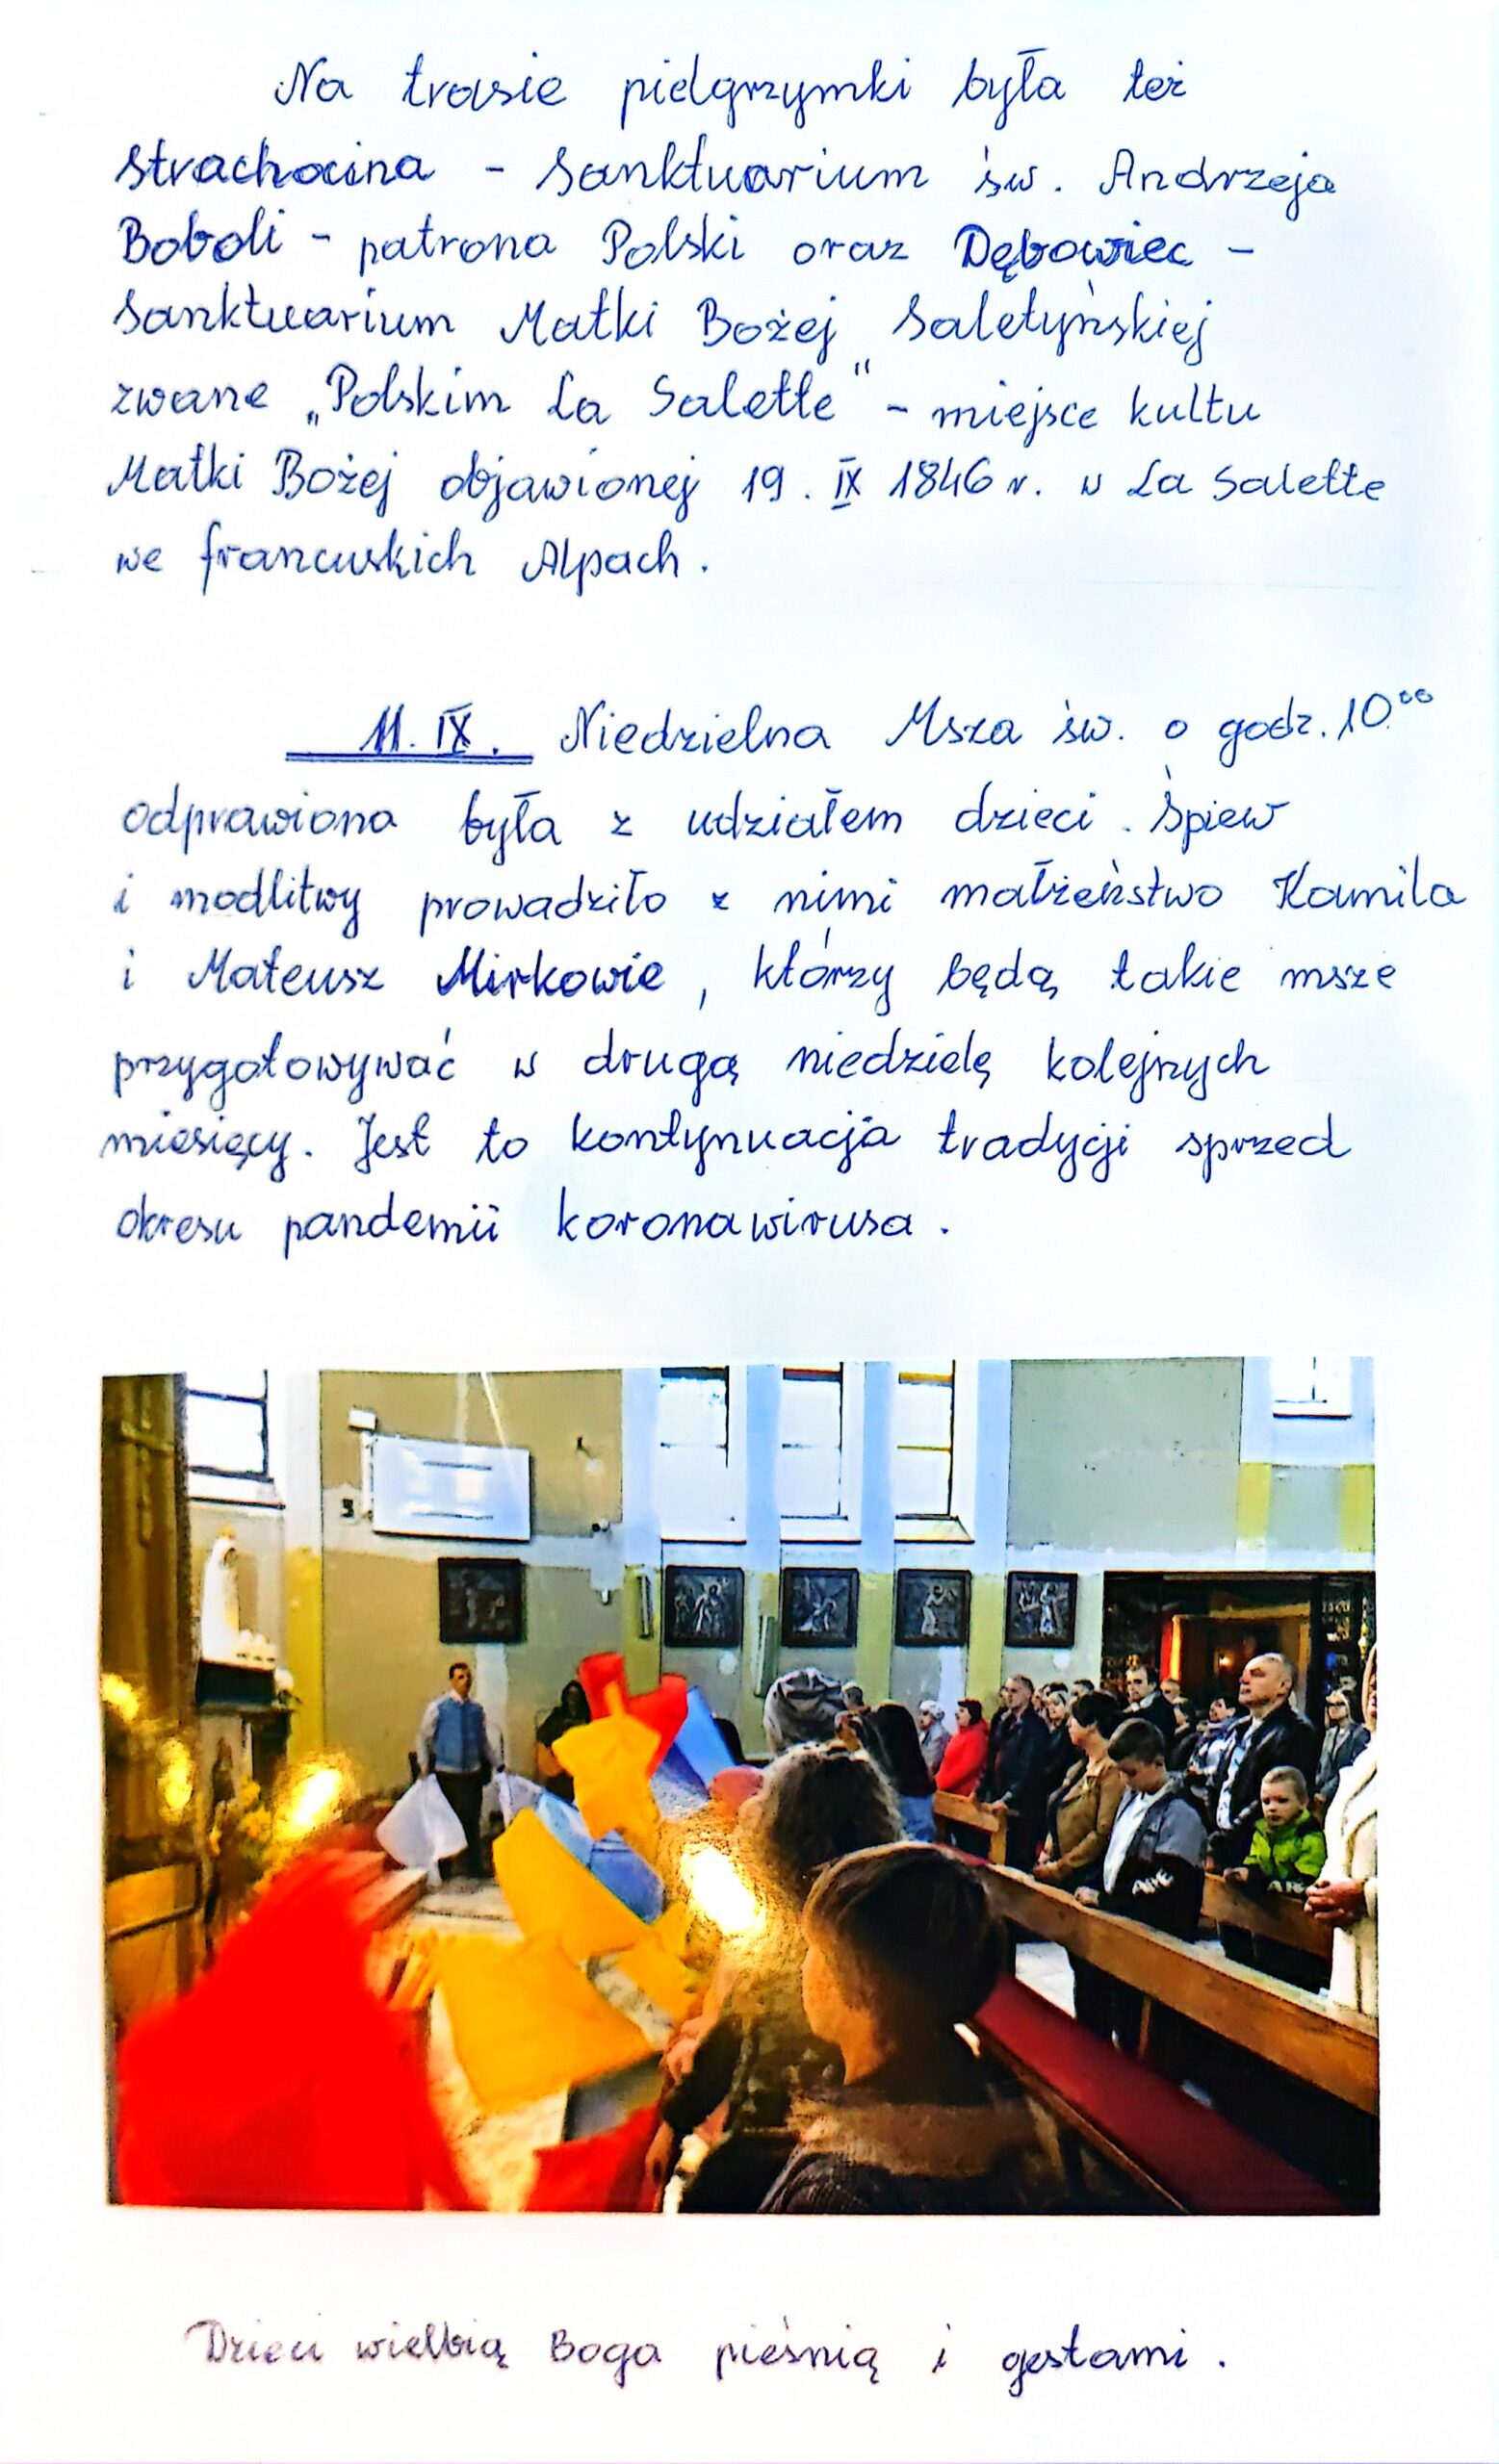 Na trasie pielgrzymki była też
Strachocina - Sanktuarium św. Andrzeja
Boboli - patrona Polski oraz Dębowiec -
Sanktuarium Matki Bożej Saletyńskiej
zwane „Polskim La Salette" - miejsce kultu
Matki Bożej objawionej 19. IX 1846 r. w La Salette
we francuskich Alpach.
11. IX. Niedzielna Msza św. o godz. 10.⁰⁰
odprawiona była z udziałem dzieci. Śpiew
i modlitwy prowadziło z nimi małżeństwo Kamila
i Mateusz Mirkowie, którzy będą takie msze
przygotowywać w drugą niedzielę kolejnych
miesięcy. Jest to kontynuacja tradycji sprzed
okresu pandemii koronawirusa.
Dzieci wielbią Boga pieśnią i gestami.